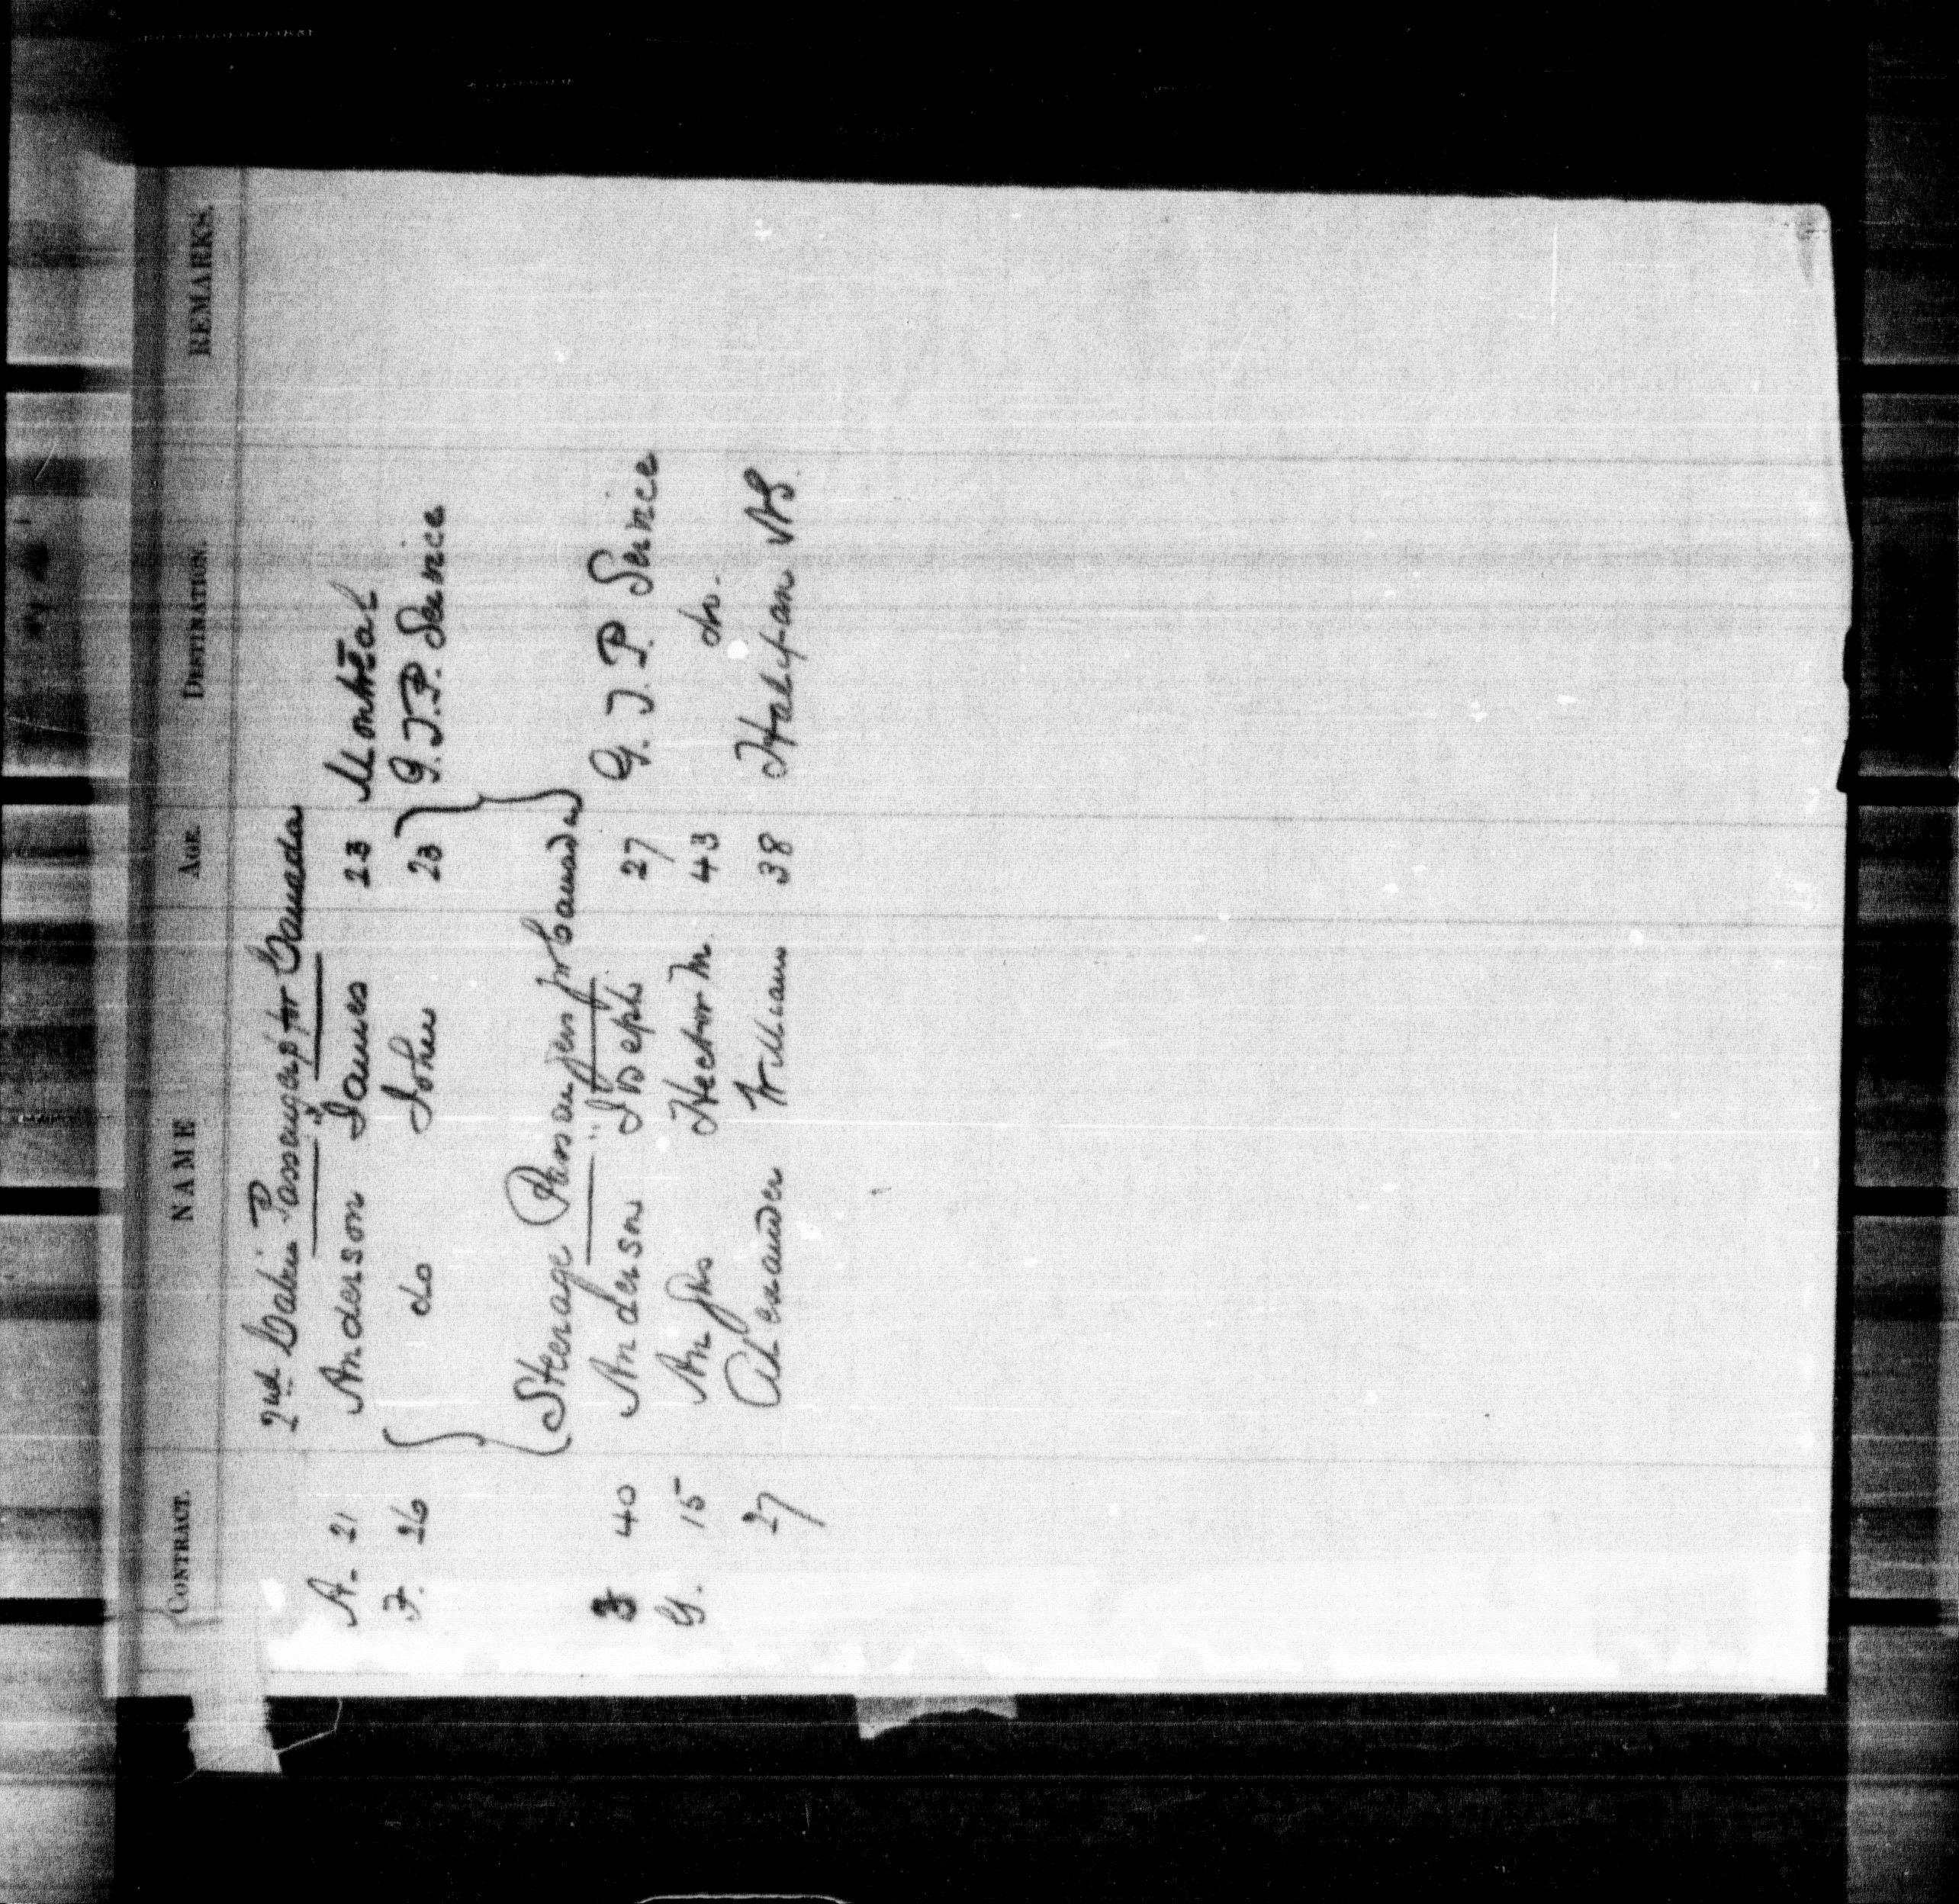 CONTRACT. NAME AGE. DESTINATION. REMARKS.
2nd Cabin Passengers for Canada
A. 21 Anderson James 23 Montreal
F. 26 do John 23 G.T.P. Service
Steerage Passengers for Canada
40 Anderson Joseph 27 G. T. P. Service
G. 15 Angus Hector M. 43 do.
27 Alexander William 38 Halifax NS